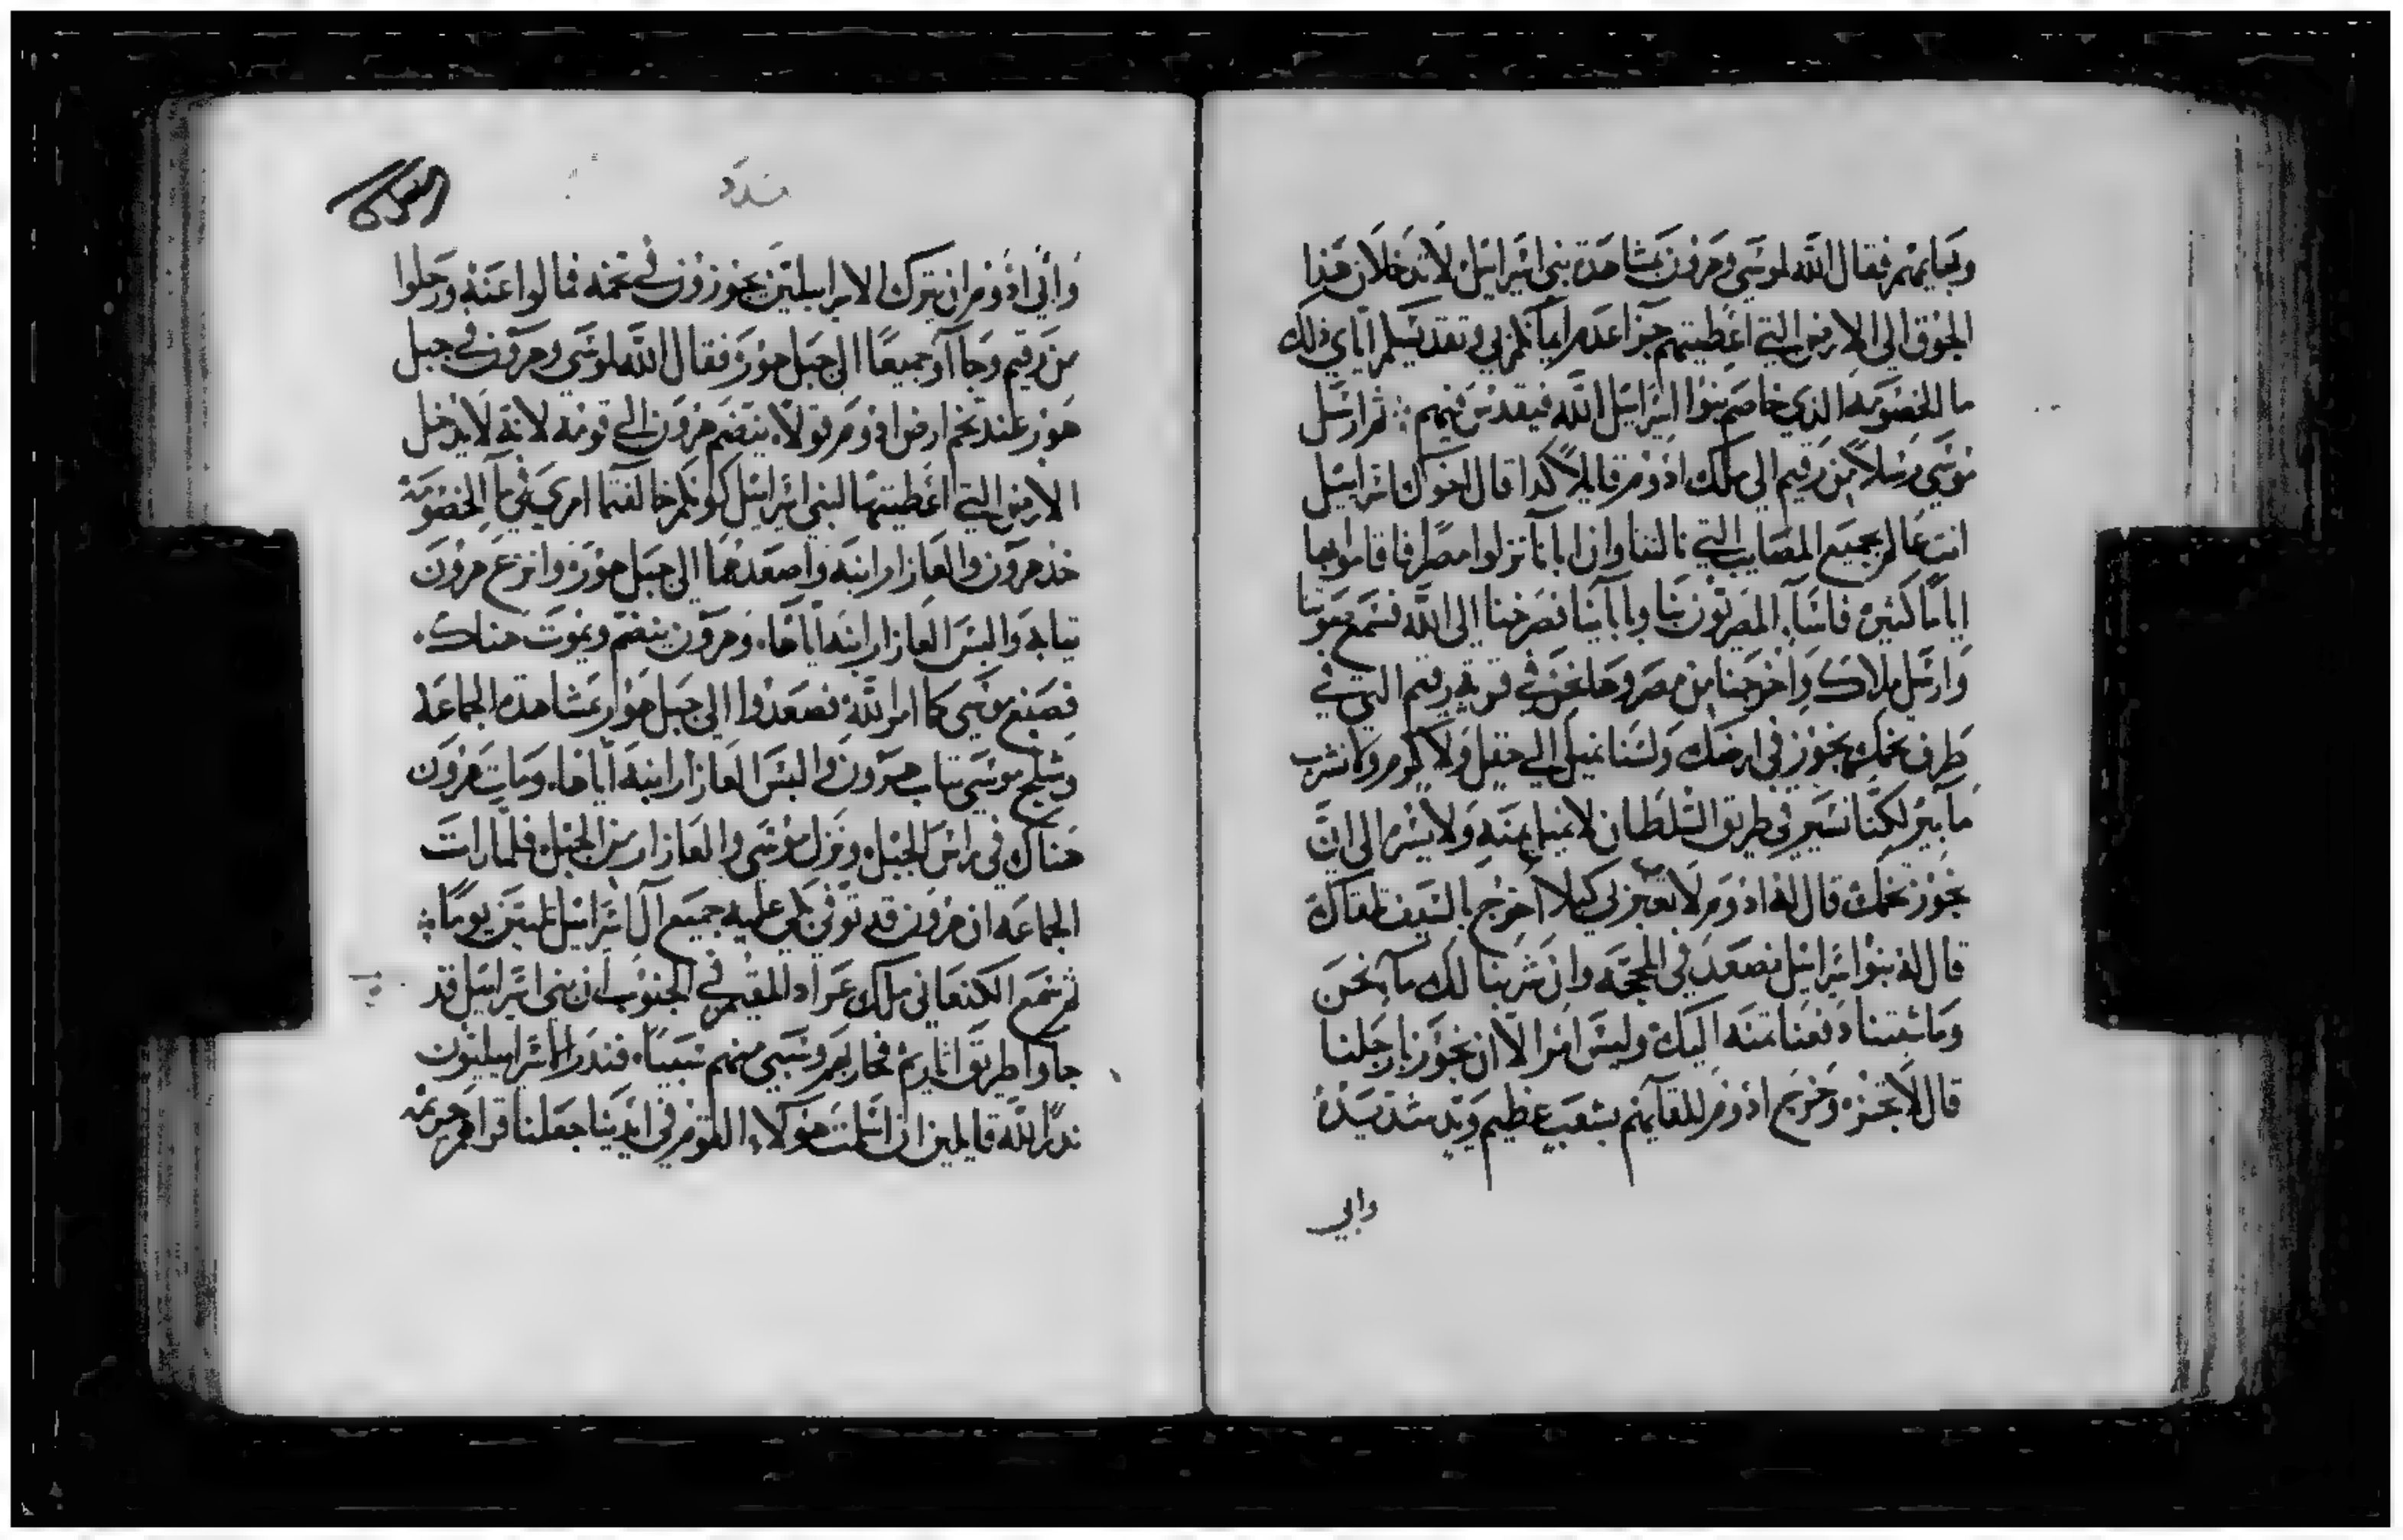 وبهايمهم فقال الله لموسي وهرون بمشاهدة بني اسرايل لا تدخلان هذا
الجوق الي الارض التي اعطيتهم جزا عدم ايمانكم بي وتقديسكم اياي ذلك
ما الخصومه الذي خاصم بنوا اسرايل الله فيقدس فيهم ثم ارسل
موسي رسلاً من رقيم الي ملك ادوم قايلاً كدا قال اخوك اسرايل
انت عالم بجميع المصايب التي نالتنا وان ابانا نزلوا مصر فاقاموا بها
اياما كثيره فاساء المصريون بنا وبابآينا فصرخنا الي الله فسمع صوتنا
وارسل ملاك واخرجنا من مصر وها نحن في قرية رقيم التي في
طرف تخمك نجوز في ارضك ولسنا نميل الي حقل ولا كرم ولا نشرب
ما بير لكنا نسير في طريق السلطان لا نميل يمنه ولا يسره الي ان
نجوز تخمك قال له ادوم لا تعبر بي كيلا اخرج بالسيف للقاك
قال له بنوا اسرايل نصعد في المحجه وان شربنا لك مآ نحن
وماشيتنا دفعنا ثمنه اليك وليس امرا الا ان نجوز بارجلنا
قال لا تجزه وخرج ادوم للقآيهم بشعب عظيم ويد شديده
وابي
التوراه
وابي ادوم ان يترك الاسرايليين يجوزون في تخمه فمالوا عنه ورحلوا
من رقيم وجاآو جميعًا الي جبل هور فقال الله لموسي وهرون في جبل
هور عند تخم ارض ادوم قولا ينضم هرون الي قومه لانه لا يدخل
الارض التي اعطيتها لبني اسرايل كونكم خالفتما امري في مآ الخصومه
خذ هرون والعازار ابنه واصعدهما الي جبل هور وانزع هرون
تيابه والبس العازار ابنه اياها وهرون ينضم ويموت هناك
فصنع موسي كما امر الله فصعدوا الي جبل هور بمشاهدة الجماعه
وشلح موسي تياب هرون والبس العازار ابنه اياها ومات هرون
هناك في راس الجبل ونزل موسي والعازار من الجبل فلما رات
الجماعه ان هرون قد توفي بكي عليه جميع آل اسرايل تلتين يومًا
ثم سمع الكنعاني ملك عراد المقيم في الجنوب ان بني اسرايل قد
جاوا طريق اتاريم فحاربهم وسبي منهم سبيًا فندر الاسرايليون
ندرًا لله قايلين ان اسلمت هولاء القوم في ايدينا جعلنا قراهم حريمه